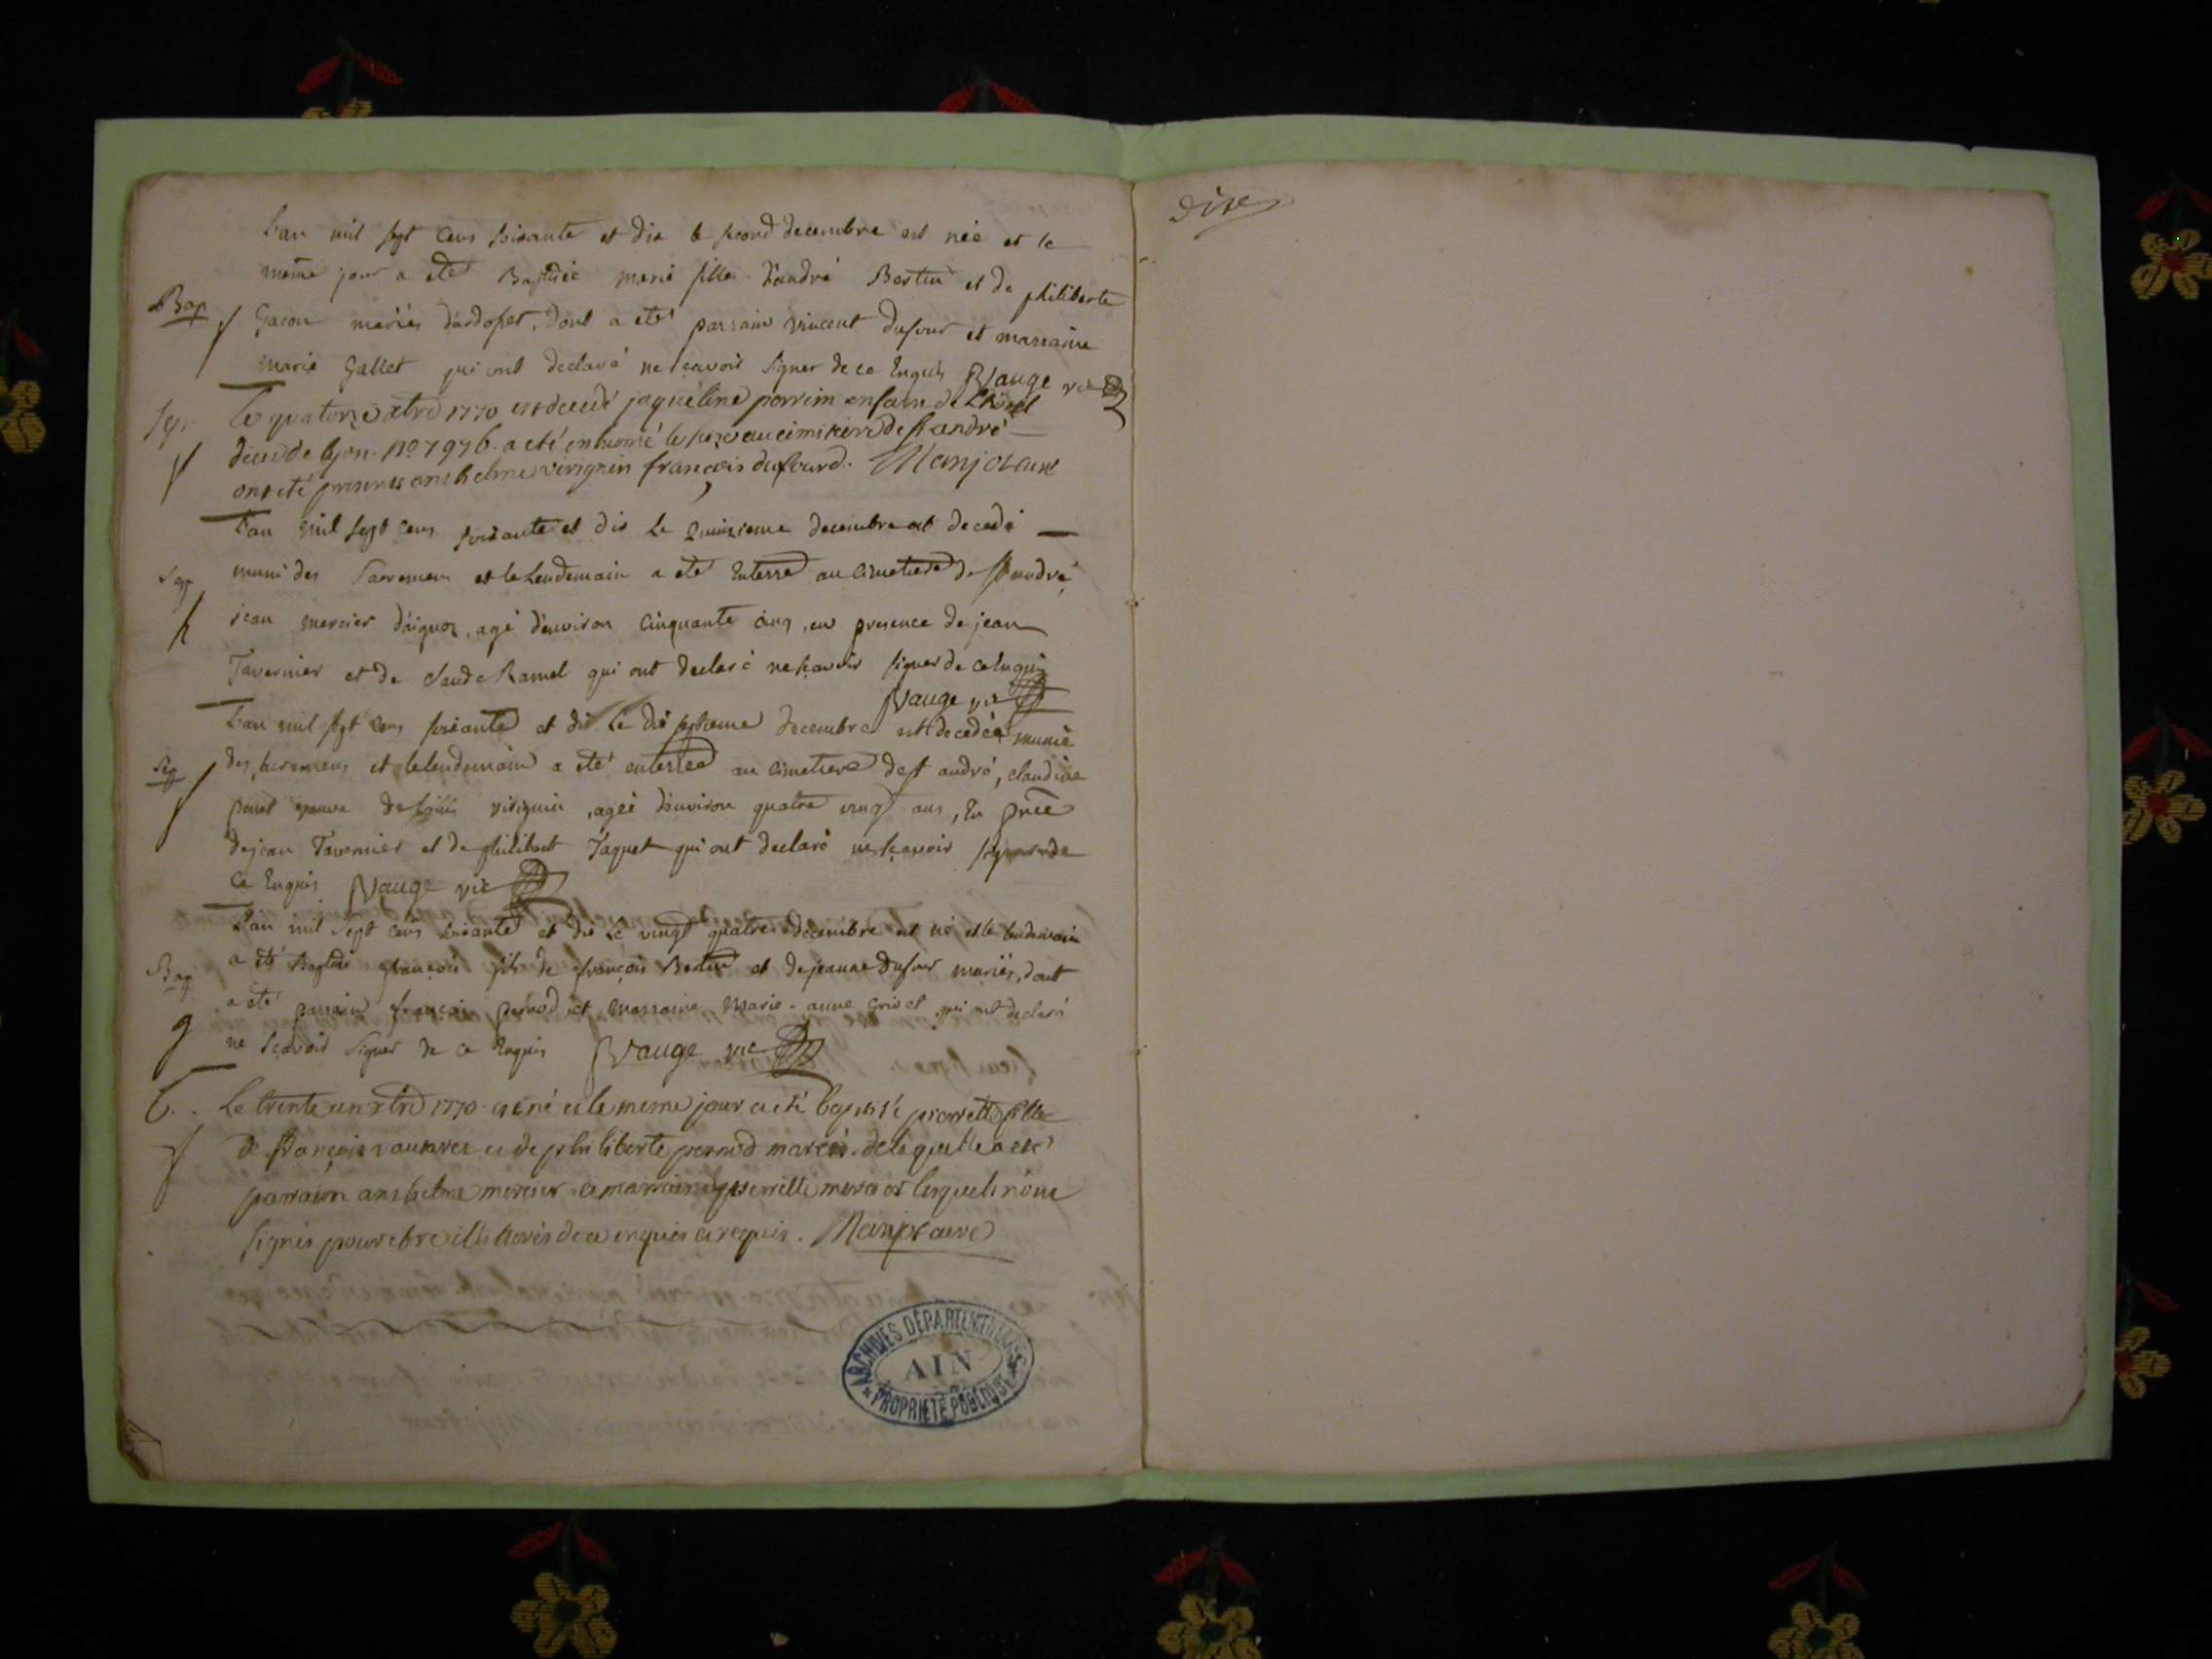 L'an mil sept cens soisante et dix le second decembre est née et le
même jour a eté Baptisée marie fille d'andré Bertin et de philiberte
Bap
Gacon mariés d'ardosset, dont a eté parrain vincent dufour et marraine
marie Gallet qui ont declaré ne sçavoir signer de ce Enquis Vauge vic
Sep
Le quatorze xbre 1770 est decedé jaqueline perrim enfant de L'hotel
dieu de lyon. no 7976. a eté enhumé le seize au cimitiere de st andré
ont eté presents anthelme virignin françois dufourd. Manjolaux
L'an mil sept cens soisante et dix Le Quinzieme decembre est decedé
Sep
muni des Sacremens et le Lendemain a eté Enterré au Cimetiere de st andré,
jean mercier d'aignoz, agé d'environ Cinquante ans, en presence de jean
Tavernier et de claude Ramel qui ont declaré ne sçavoir signer de ce Enquis
Vauge vic
L'an mil sept cens soisante et dix Le dix septieme decembre est decedée munie
Sep
des sacremens et le lendemain a eté enterrée au cimetiere de st andré, claudine
ponet veuve de virignin, agée d'environ quatre vingt ans, En pnce
de jean Tavernier et de philibert Taquet qui ont declaré ne sçavoir signer de
Ce Enquis Vauge vic
L'an mil Sept Cens soisante et dix Le vingt quatre decembre est né et le lendemain
Bap
a eté Baptisé françois fils de françois Bertin et de jeanne Dufour mariés, dont
a eté parrain françois pernod et marraine marie-anne grivet qui ont declaré
ne sçavoir signer de ce Enquis Vauge vic
b..
Le trente un xbre 1770 est né et le meme jour a eté baptisé pierrette fille
de françois et de philiberte pernod mariés. de laquelle a eté
parraim anthelme mercier et marraine pierrette mercier lesquels n'ont
signés pour etre illiterés de ce enquis et requis. Manjolaux
ARCHIVES DÉPARTEMENTALES
AIN
PROPRIÉTÉ PUBLIQUE
dixe